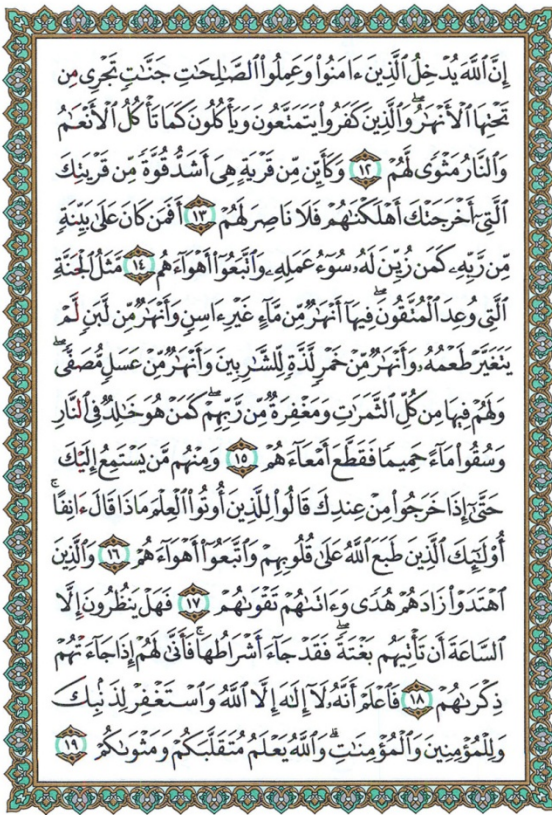 إِنَّ ٱللَّهَ يُدْخِلُ ٱلَّذِينَ ءَامَنُوا۟ وَعَمِلُوا۟ ٱلصَّـٰلِحَـٰتِ جَنَّـٰتٍ تَجْرِى مِن
تَحْتِهَا ٱلْأَنْهَـٰرُ ۖ وَٱلَّذِينَ كَفَرُوا۟ يَتَمَتَّعُونَ وَيَأْكُلُونَ كَمَا تَأْكُلُ ٱلْأَنْعَـٰمُ
وَٱلنَّارُ مَثْوًى لَّهُمْ ١٢ وَكَأَيِّن مِّن قَرْيَةٍ هِىَ أَشَدُّ قُوَّةً مِّن قَرْيَتِكَ
ٱلَّتِىٓ أَخْرَجَتْكَ أَهْلَكْنَـٰهُمْ فَلَا نَاصِرَ لَهُمْ ١٣ أَفَمَن كَانَ عَلَىٰ بَيِّنَةٍ
مِّن رَّبِّهِۦ كَمَن زُيِّنَ لَهُۥ سُوٓءُ عَمَلِهِۦ وَٱتَّبَعُوٓا۟ أَهْوَآءَهُم ١٤ مَّثَلُ ٱلْجَنَّةِ
ٱلَّتِى وُعِدَ ٱلْمُتَّقُونَ ۖ فِيهَآ أَنْهَـٰرٌ مِّن مَّآءٍ غَيْرِ ءَاسِنٍ وَأَنْهَـٰرٌ مِّن لَّبَنٍ لَّمْ
يَتَغَيَّرْ طَعْمُهُۥ وَأَنْهَـٰرٌ مِّنْ خَمْرٍ لَّذَّةٍ لِّلشَّـٰرِبِينَ وَأَنْهَـٰرٌ مِّنْ عَسَلٍ مُّصَفًّى ۖ
وَلَهُمْ فِيهَا مِن كُلِّ ٱلثَّمَرَٰتِ وَمَغْفِرَةٌ مِّن رَّبِّهِمْ ۖ كَمَنْ هُوَ خَـٰلِدٌ فِى ٱلنَّارِ
وَسُقُوا۟ مَآءً حَمِيمًا فَقَطَّعَ أَمْعَآءَهُمْ ١٥ وَمِنْهُم مَّن يَسْتَمِعُ إِلَيْكَ
حَتَّىٰٓ إِذَا خَرَجُوا۟ مِنْ عِندِكَ قَالُوا۟ لِلَّذِينَ أُوتُوا۟ ٱلْعِلْمَ مَاذَا قَالَ ءَانِفًا ۚ
أُو۟لَـٰٓئِكَ ٱلَّذِينَ طَبَعَ ٱللَّهُ عَلَىٰ قُلُوبِهِمْ وَٱتَّبَعُوٓا۟ أَهْوَآءَهُمْ ١٦ وَٱلَّذِينَ
ٱهْتَدَوْا۟ زَادَهُمْ هُدًى وَءَاتَىٰهُمْ تَقْوَىٰهُمْ ١٧ فَهَلْ يَنظُرُونَ إِلَّا
ٱلسَّاعَةَ أَن تَأْتِيَهُم بَغْتَةً ۖ فَقَدْ جَآءَ أَشْرَاطُهَا ۚ فَأَنَّىٰ لَهُمْ إِذَا جَآءَتْهُمْ
ذِكْرَىٰهُمْ ١٨ فَٱعْلَمْ أَنَّهُۥ لَآ إِلَـٰهَ إِلَّا ٱللَّهُ وَٱسْتَغْفِرْ لِذَنۢبِكَ
وَلِلْمُؤْمِنِينَ وَٱلْمُؤْمِنَـٰتِ ۗ وَٱللَّهُ يَعْلَمُ مُتَقَلَّبَكُمْ وَمَثْوَىٰكُمْ ١٩